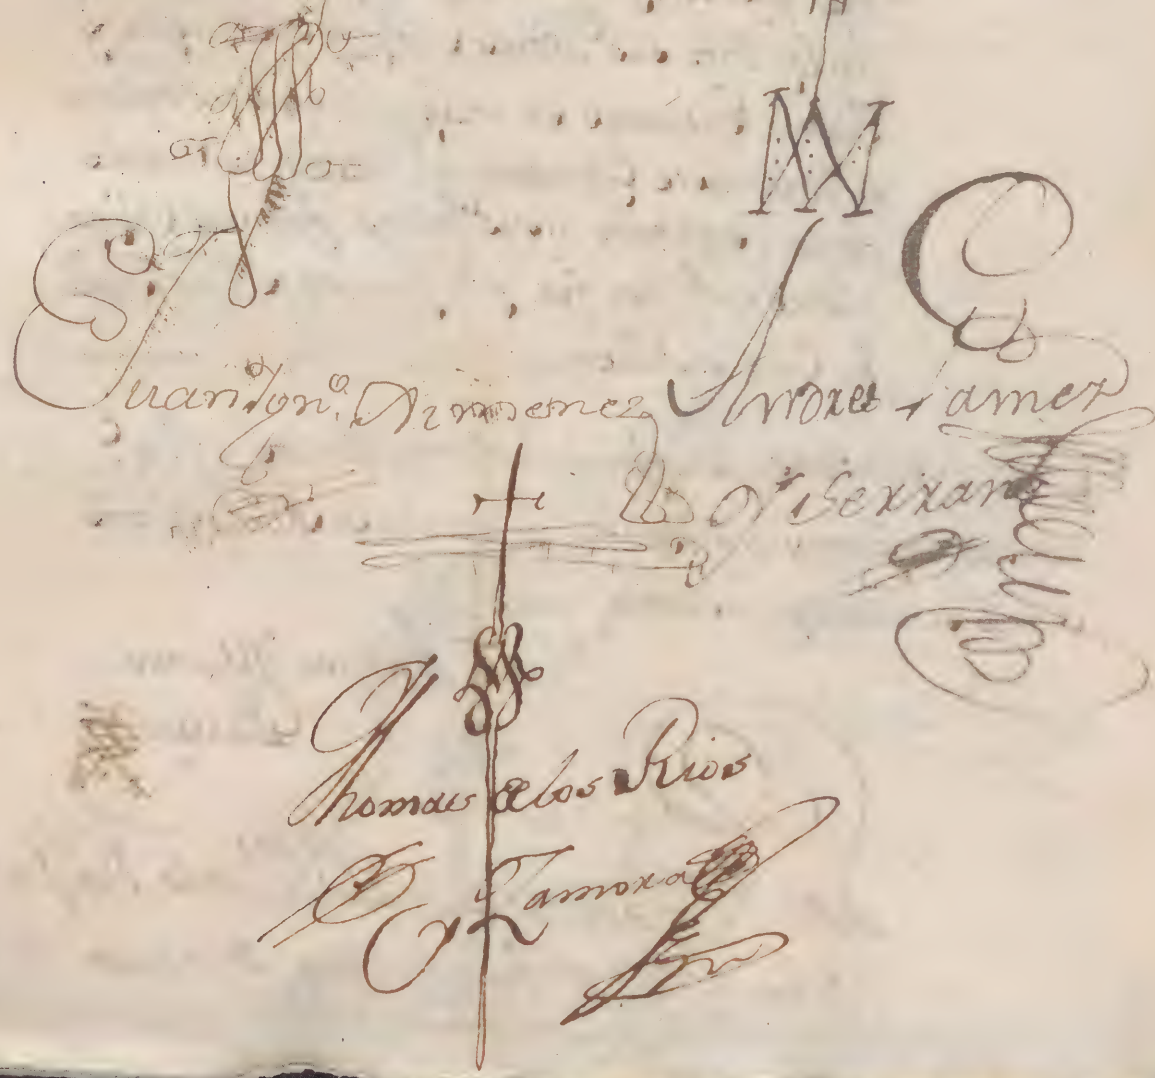 Juan Ygnº Ximenez
Andres Gamez
y Serrano
Thomas de los Rios
y Zamora